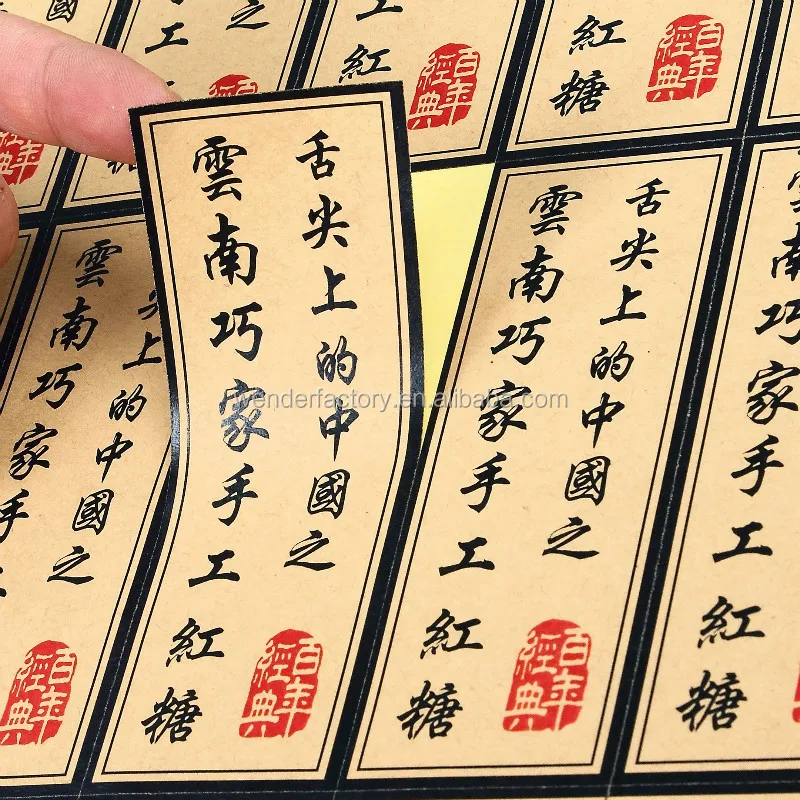 舌尖上的中國之
雲南巧家手工紅糖
百年
經典
舌尖上的中國之
雲南巧家手工紅糖
百年
經典